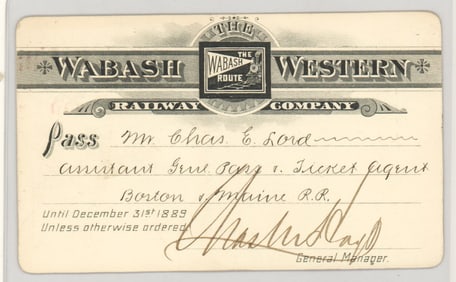 THE
WABASH WESTERN
THE
WABASH
ROUTE
RAILWAY COMPANY
Pass Mr. Chas. E. Lord
Assistant Genl. Pass. & Ticket Agent
Boston & Maine R.R.
Until December 31st 1889
Unless otherwise ordered
General Manager.